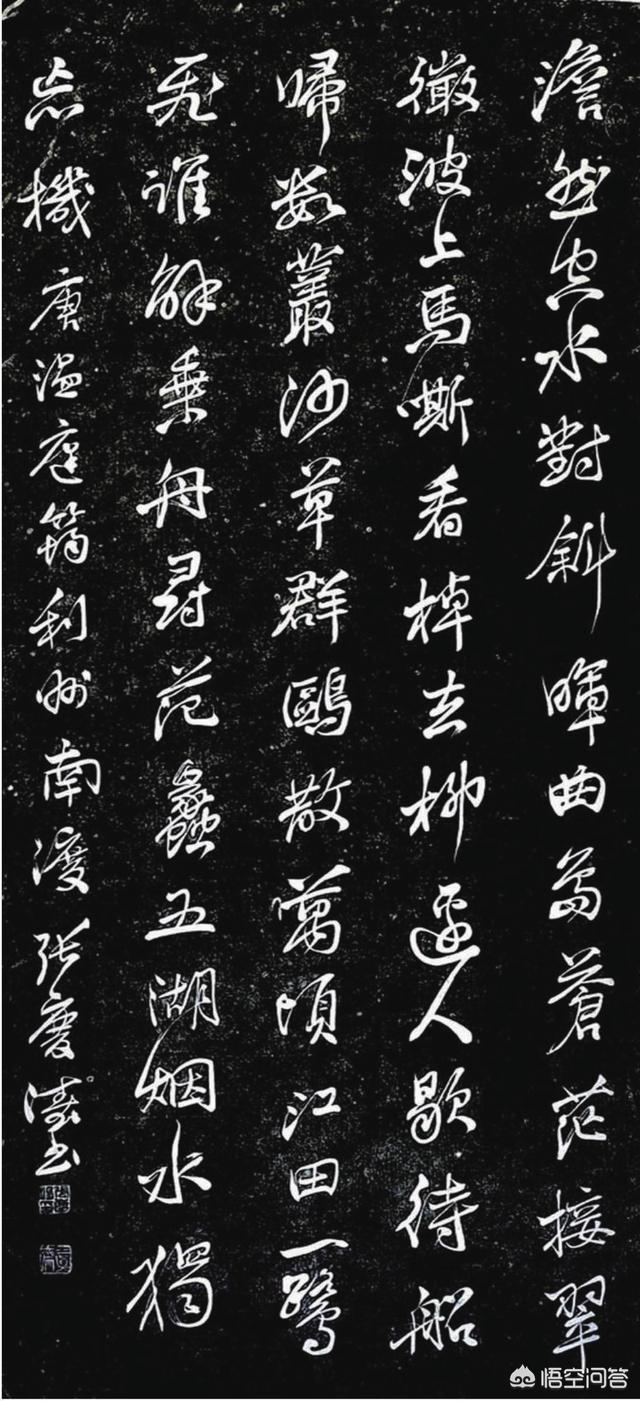 澹然空水對斜暉曲島蒼茫接翠
微波上馬嘶看棹去柳邊人歇待船
歸數叢沙草群鷗散萬頃江田一鷺
飛誰解乘舟尋范蠡五湖烟水獨
忘機唐溫庭筠利州南渡張慶书
悟空问答